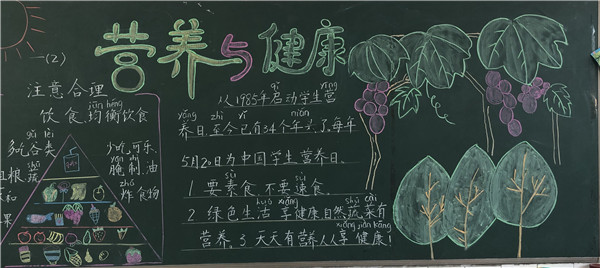 (2)
营养与健康
注意合理
jūn héng
饮食,均衡饮食
gǔ lèi
多吃谷类
shǔ
根,蔬
果
少吃可乐,
yān zhì
腌制,油
zhá
炸食物
qǐ yíng
从1985年启动学生营
yǎng zhì yǐ nián
养日,至今已有34个年
了,每年
5月20日为中国学生营养日。
sù sù
1 要素食,不要速食。
huó xiǎng shū cài
2 绿色生活 享健康自然蔬菜有
xiǎng jiàn kāng
营养,3 天天有营养人人享健康!